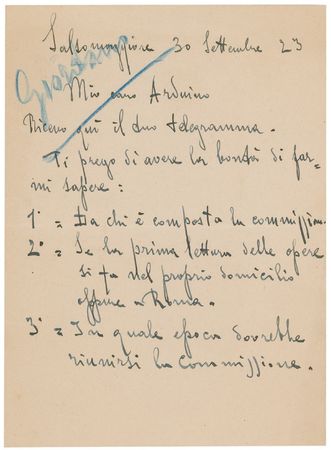 Salsomaggiore 30 Settembre 23
Giordano
Mio caro Arduino
Ricevo quì il tuo telegramma.
Ti prego di avere la bontà di far-
mi sapere:
1° = Da chi è composta la commissione.
2° = Se la prima lettura delle opere
si fa nel proprio domicilio
oppure a Roma.
3° = In quale epoca dovrebbe
riunirsi la commissione.